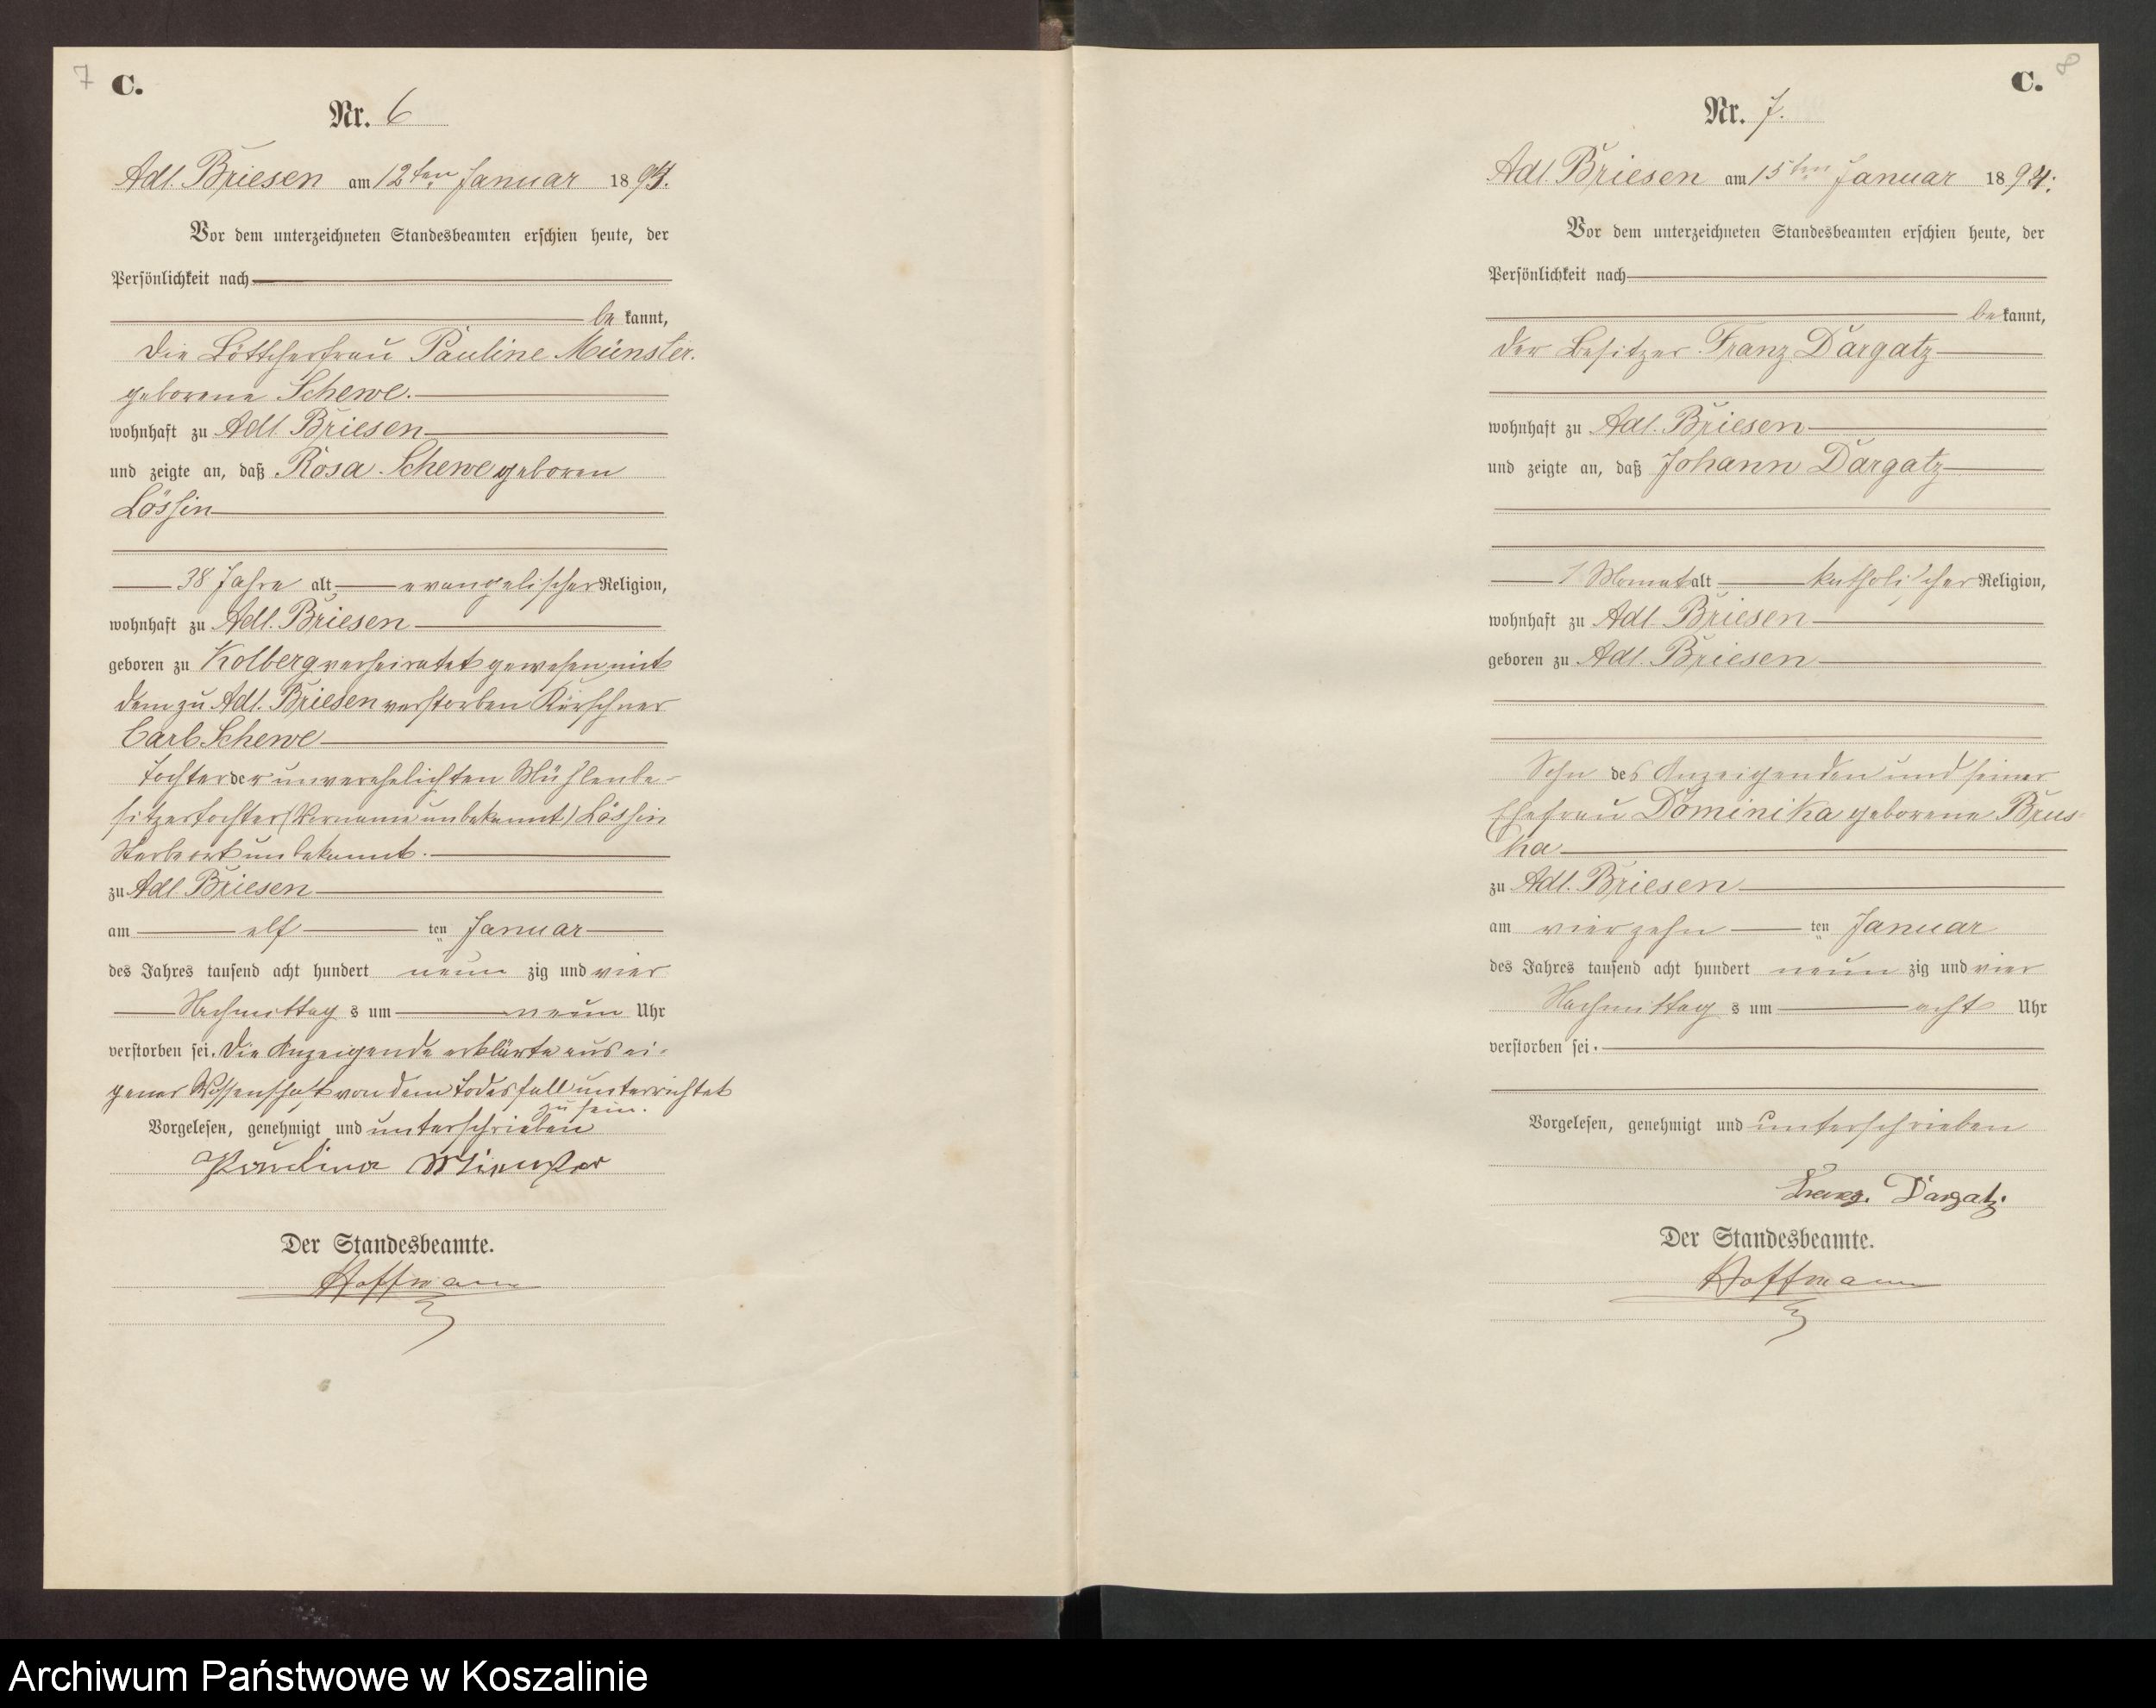 7 C.
Nr. 6
Adl. Briesen am 12ten Januar 1894.
Vor dem unterzeichneten Standesbeamten erschien heute, der
Persönlichkeit nach
be kannt,
die Böttcherfrau Pauline Münster.
geborene Schewe.
wohnhaft zu Adl. Briesen
und zeigte an, daß Rosa Schewe geboren
Lössin
38 Jahre alt evangelischer Religion,
wohnhaft zu Adl. Briesen
geboren zu Kolberg verheiratet gewesen mit
dem zu Adl. Briesen verstorben Kürschner
Carl Schewe
Tochter der unverehelichten Mühlenbe-
sitzertochter (Vorname unbekannt) Lössin
Sterbeort unbekannt.
zu Adl. Briesen
am elf ten Januar
des Jahres tausend acht hundert neun zig und vier
Nachmittag s um neun Uhr
verstorben sei. Die Anzeigende erklärte aus ei-
gener Wissenschaft von dem Todesfall unterrichtet
zu sein.
Vorgelesen, genehmigt und unterschrieben
Paulina Münster
Der Standesbeamte.
Hoffmann
C. 8
Nr. 7.
Adl. Briesen am 15ten Januar 1894.
Vor dem unterzeichneten Standesbeamten erschien heute, der
Persönlichkeit nach
be kannt,
der Besitzer Franz Dargatz
wohnhaft zu Adl. Briesen
und zeigte an, daß Johann Dargatz
1 Monat alt katholischer Religion,
wohnhaft zu Adl. Briesen
geboren zu Adl. Briesen
Sohn des Anzeigenden und seiner
Ehefrau Dominika geborene Brus-
ka
zu Adl. Briesen
am vierzehn ten Januar
des Jahres tausend acht hundert neun zig und vier
Nachmittag s um acht Uhr
verstorben sei.
Vorgelesen, genehmigt und unterschrieben
Franz. Dargatz.
Der Standesbeamte.
Hoffmann
Archiwum Państwowe w Koszalinie